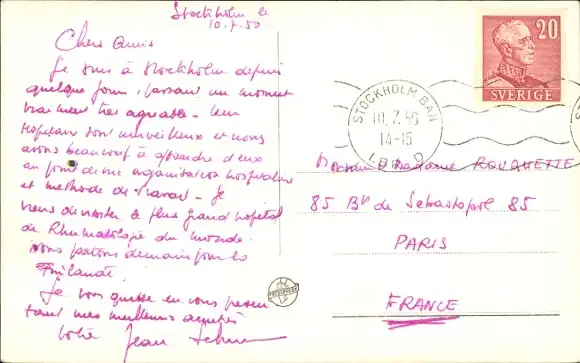 Stockholm le
10.7.50
Chers Amis
Je suis à Stockholm depuis
quelque jours, passant un moment
vraiment très agréable. Leurs
hôpitaux sont merveilleux et nous
avons beaucoup à apprendre d'eux
au point de vue organisation hospitalière
et méthode de travail. Je
viens de visiter le plus grand hôpital
de Rhumatologie du monde.
nous partons demain pour la
Finlande.
Je vous quitte en vous
tant mes meilleurs amitiés
Votre Jean
20
SVERIGE
STOCKHOLM BAN
10.7.50
14-15
Madame ROUQUETTE
85 Bd de Sébastopol 85
PARIS
FRANCE